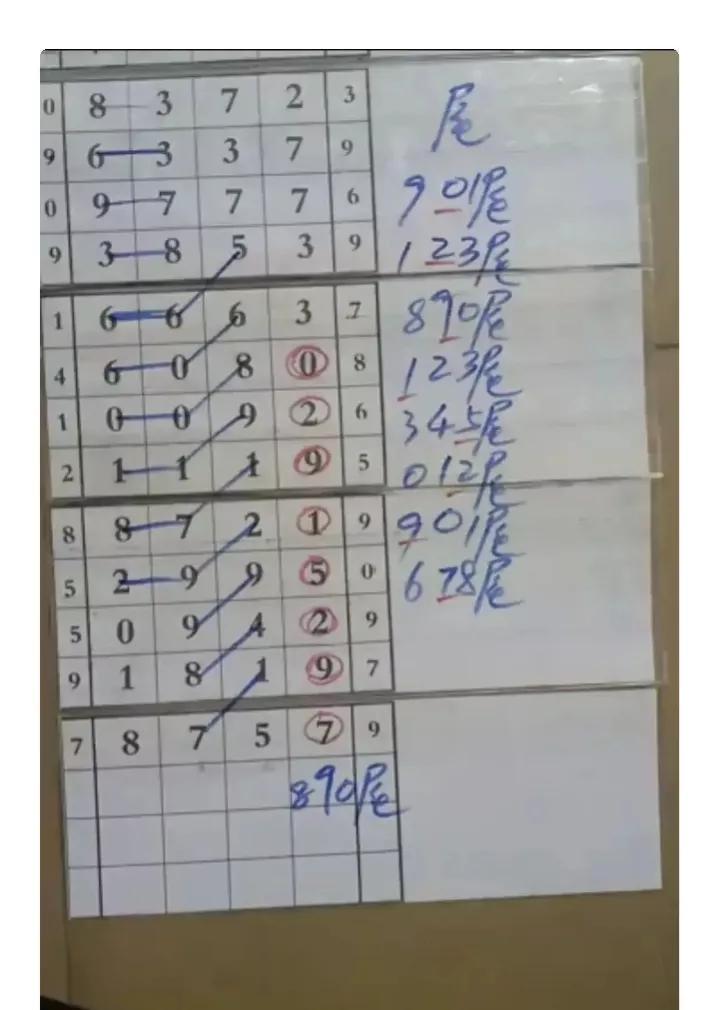 0 8 3 7 2 3 尾
9 6 3 3 7 9
0 9 7 7 7 6 901尾
9 3 8 5 3 9 123尾
1 6 6 6 3 7 890尾
4 6 0 8 0 8 123尾
1 0 0 9 2 6 345尾
2 1 1 1 9 5 012尾
8 8 7 2 1 9 901尾
5 2 9 9 5 0 678尾
5 0 9 4 2 9
9 1 8 1 9 7
7 8 7 5 7 9
890尾